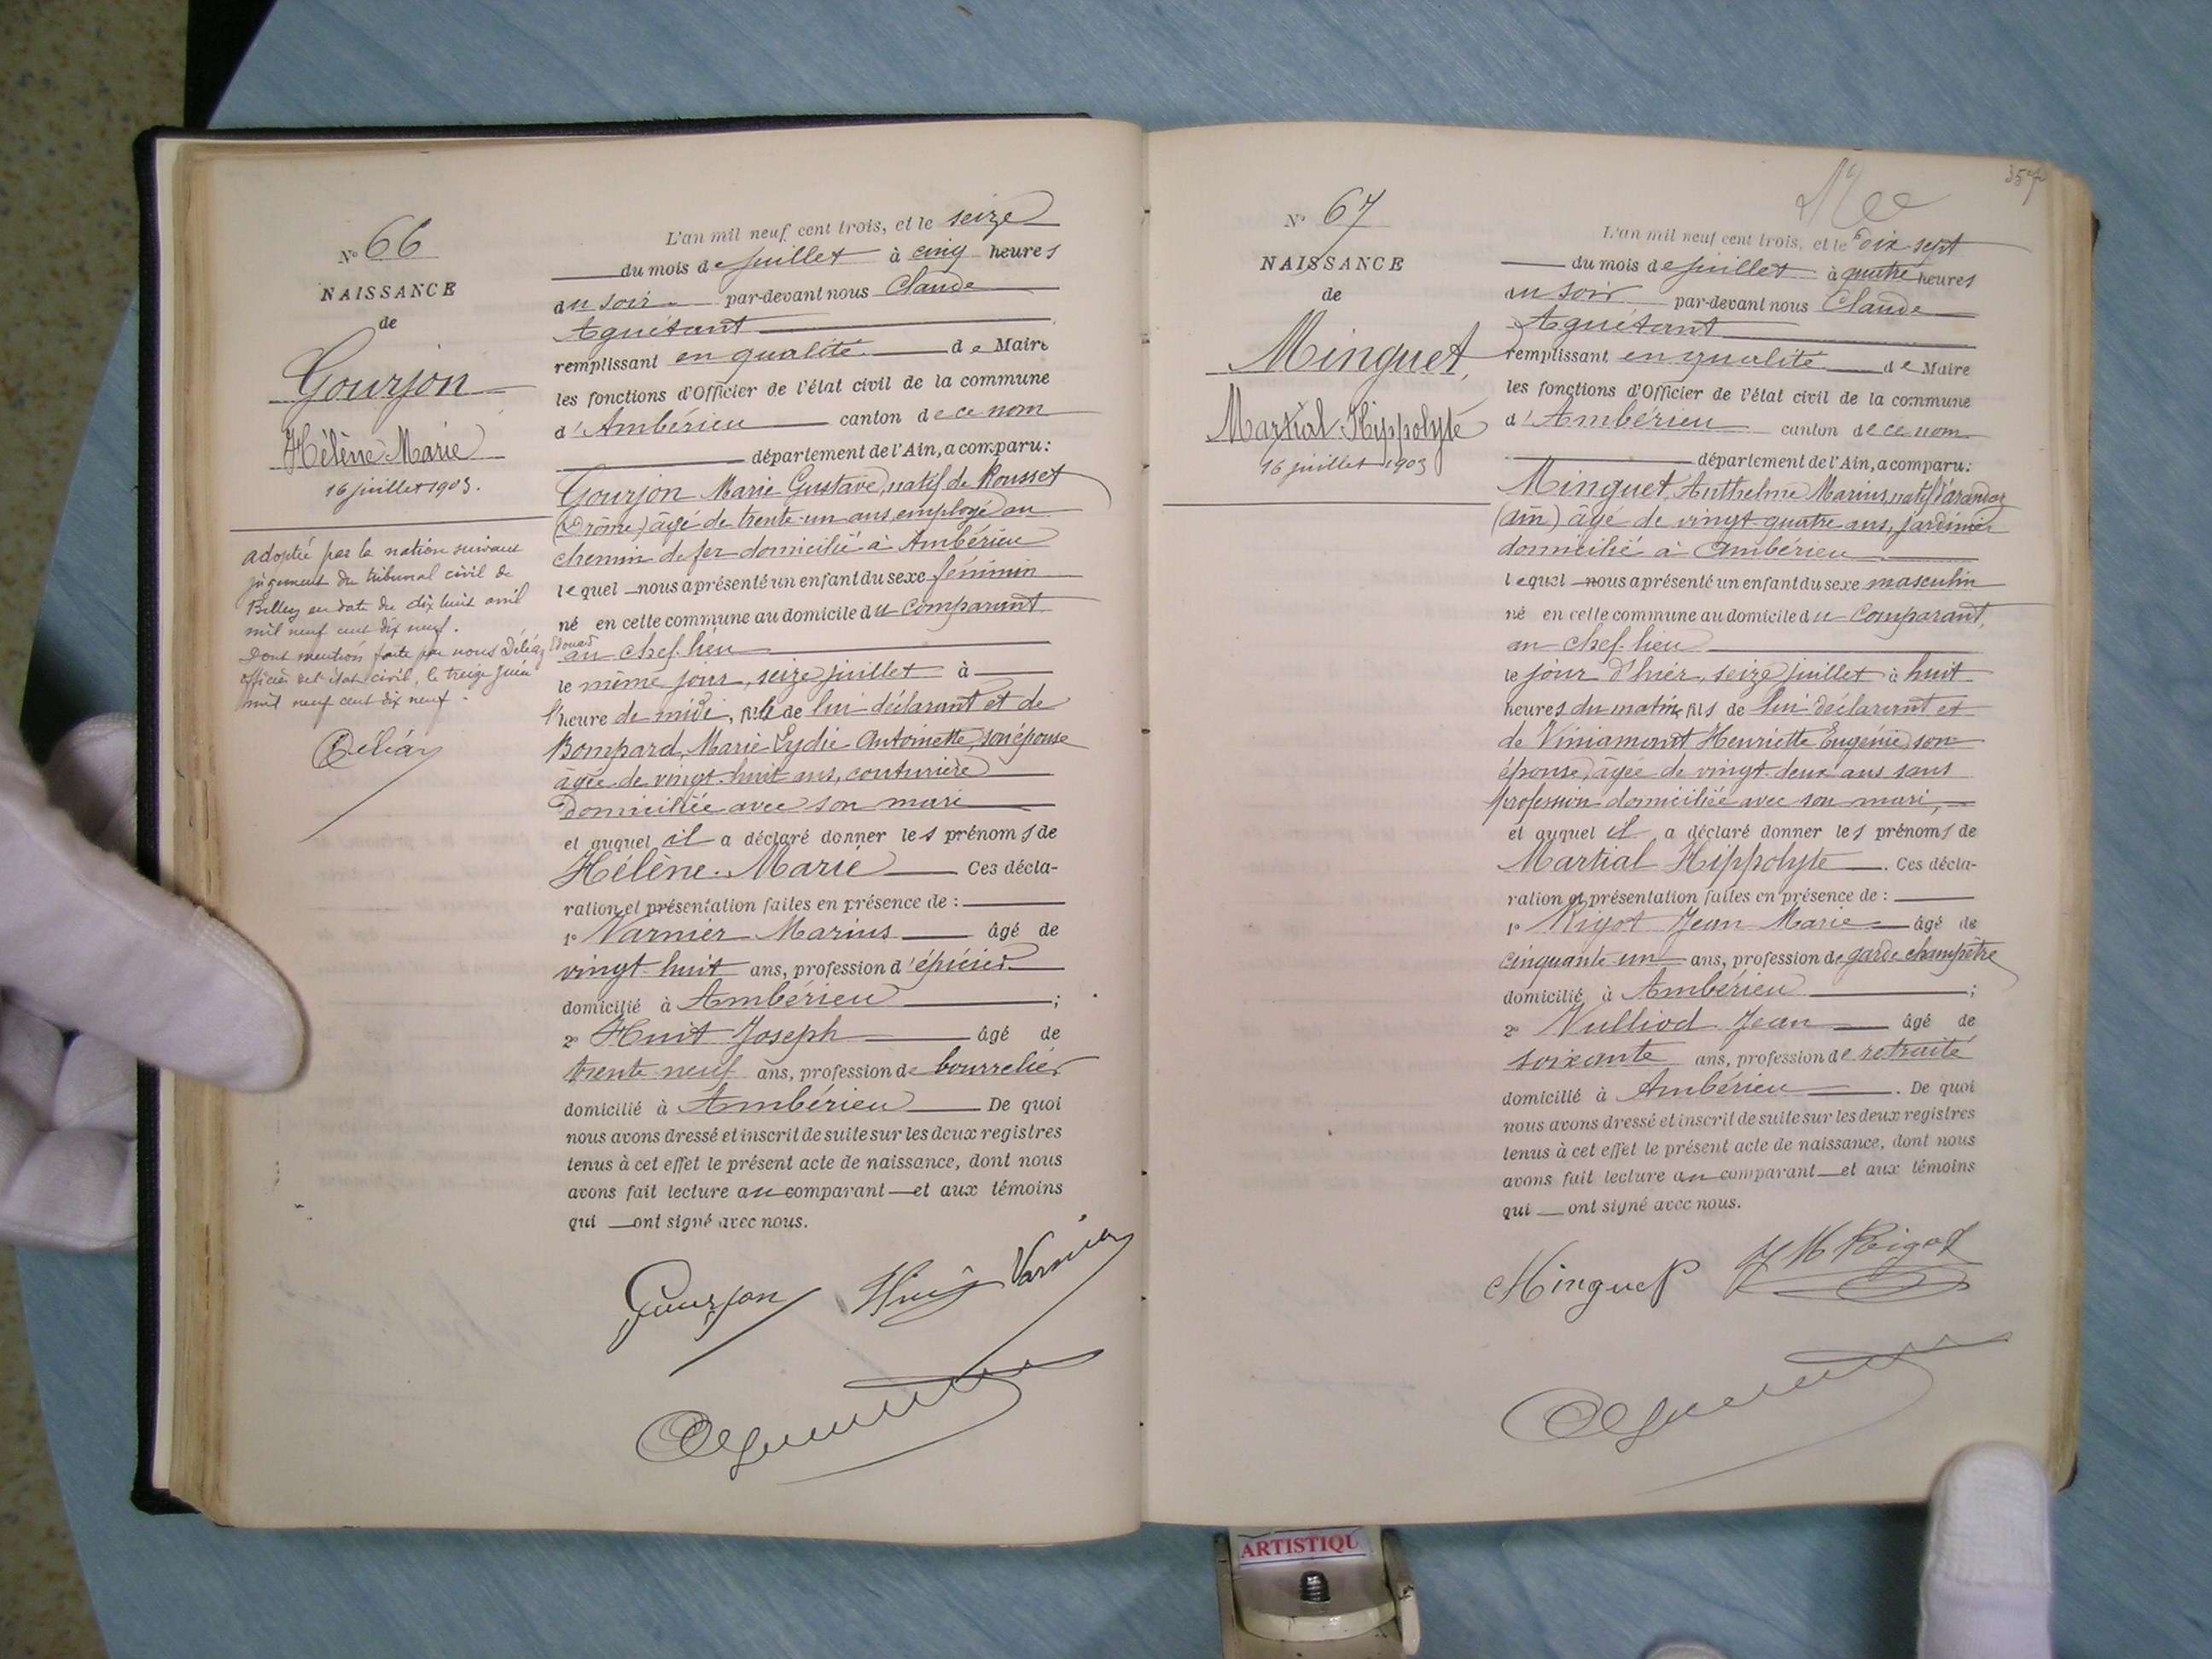 N° 66
NAISSANCE
de
Gourjon
Hélène Marie
16 juillet 1903.
adoptée par la nation suivant
jugement du tribunal civil de
Belley en date du dix huit avril
mil neuf cent dix neuf.
Dont mention faite par nous Déléaz Edouard
officier de l'état civil, le treize juin
mil neuf cent dix neuf.
Déléaz
L'an mil neuf cent trois, et le seize
du mois de juillet à cinq heures
du soir par-devant nous Claude
Aguétant
remplissant en qualité de Maire
les fonctions d'Officier de l'état civil de la commune
d'Ambérieu canton de ce nom
département de l'Ain, a comparu:
Gourjon Marie Gustave, natif de Rousset
(Drôme) âgé de trente-un ans, employé au
chemin de fer domicilié à Ambérieu
lequel nous a présenté un enfant du sexe féminin
né en cette commune au domicile du comparant
au chef-lieu
le même jour, seize juillet à
l'heure de midi, fille de lui déclarant et de
Bompard, Marie Lydie Antoinette, son épouse
âgée de vingt-huit ans, couturière
domiciliée avec son mari
et auquel il a déclaré donner les prénoms de
Hélène Marie Ces décla-
ration et présentation faites en présence de :
1° Varnier Marius âgé de
vingt-huit ans, profession d'épicier
domicilié à Ambérieu ;
2° Huit Joseph âgé de
trente neuf ans, profession de bourrelier
domicilié à Ambérieu De quoi
nous avons dressé et inscrit de suite sur les deux registres
tenus à cet effet le présent acte de naissance, dont nous
avons fait lecture au comparant et aux témoins
qui ont signé avec nous.
Gourjon Huit Varnier
Aguétant
357
N° 67
NAISSANCE
de
Minguet,
Martial Hippolyte
16 juillet 1903
L'an mil neuf cent trois, et le dix sept
du mois de juillet à quatre heures
du soir par-devant nous Claude
Aguétant
remplissant en qualité de Maire
les fonctions d'Officier de l'état civil de la commune
d'Ambérieu canton de ce nom
département de l'Ain, a comparu:
Minguet, Anthelme Marius, natif d'arandas
(ain) âgé de vingt-quatre ans, jardinier
domicilié à Ambérieu
lequel nous a présenté un enfant du sexe masculin
né en cette commune au domicile du comparant,
au chef-lieu
le jour d'hier, seize juillet à huit
heures du matin, fils de lui déclarant et
de Viniamont Henriette Eugénie son
épouse, âgée de vingt-deux ans sans
profession domiciliée avec son mari,
et auquel il a déclaré donner les prénoms de
Martial Hippolyte . Ces décla-
ration et présentation faites en présence de :
1° Rigot Jean Marie âgé de
cinquante-un ans, profession de garde champêtre
domicilié à Ambérieu ;
2° Vulliod Jean âgé de
soixante ans, profession de retraité
domicilié à Ambérieu . De quoi
nous avons dressé et inscrit de suite sur les deux registres
tenus à cet effet le présent acte de naissance, dont nous
avons fait lecture au comparant et aux témoins
qui ont signé avec nous.
Minguet J M Rigot
Aguétant
ARTISTIQU